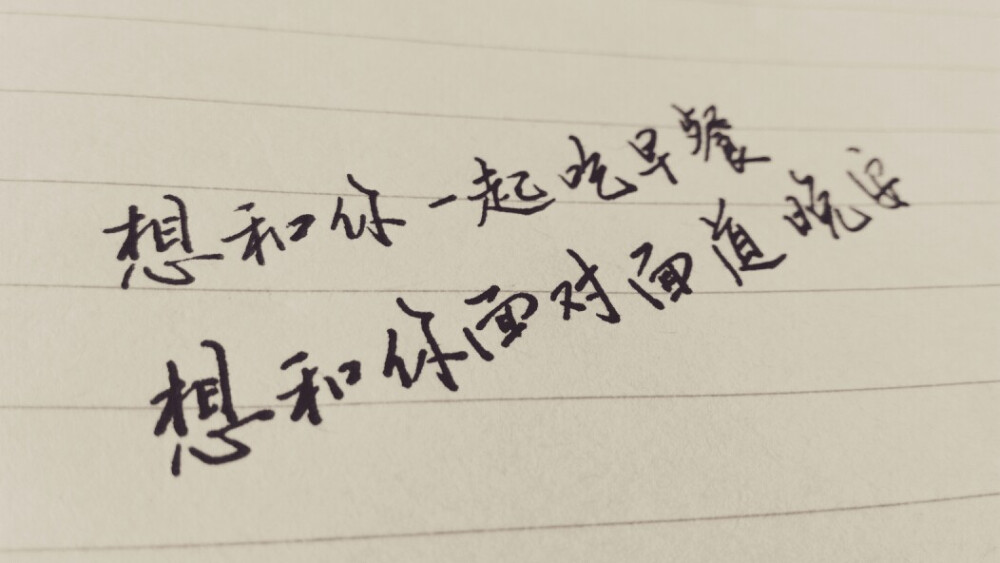 想和你一起吃早餐
想和你面对面道晚安